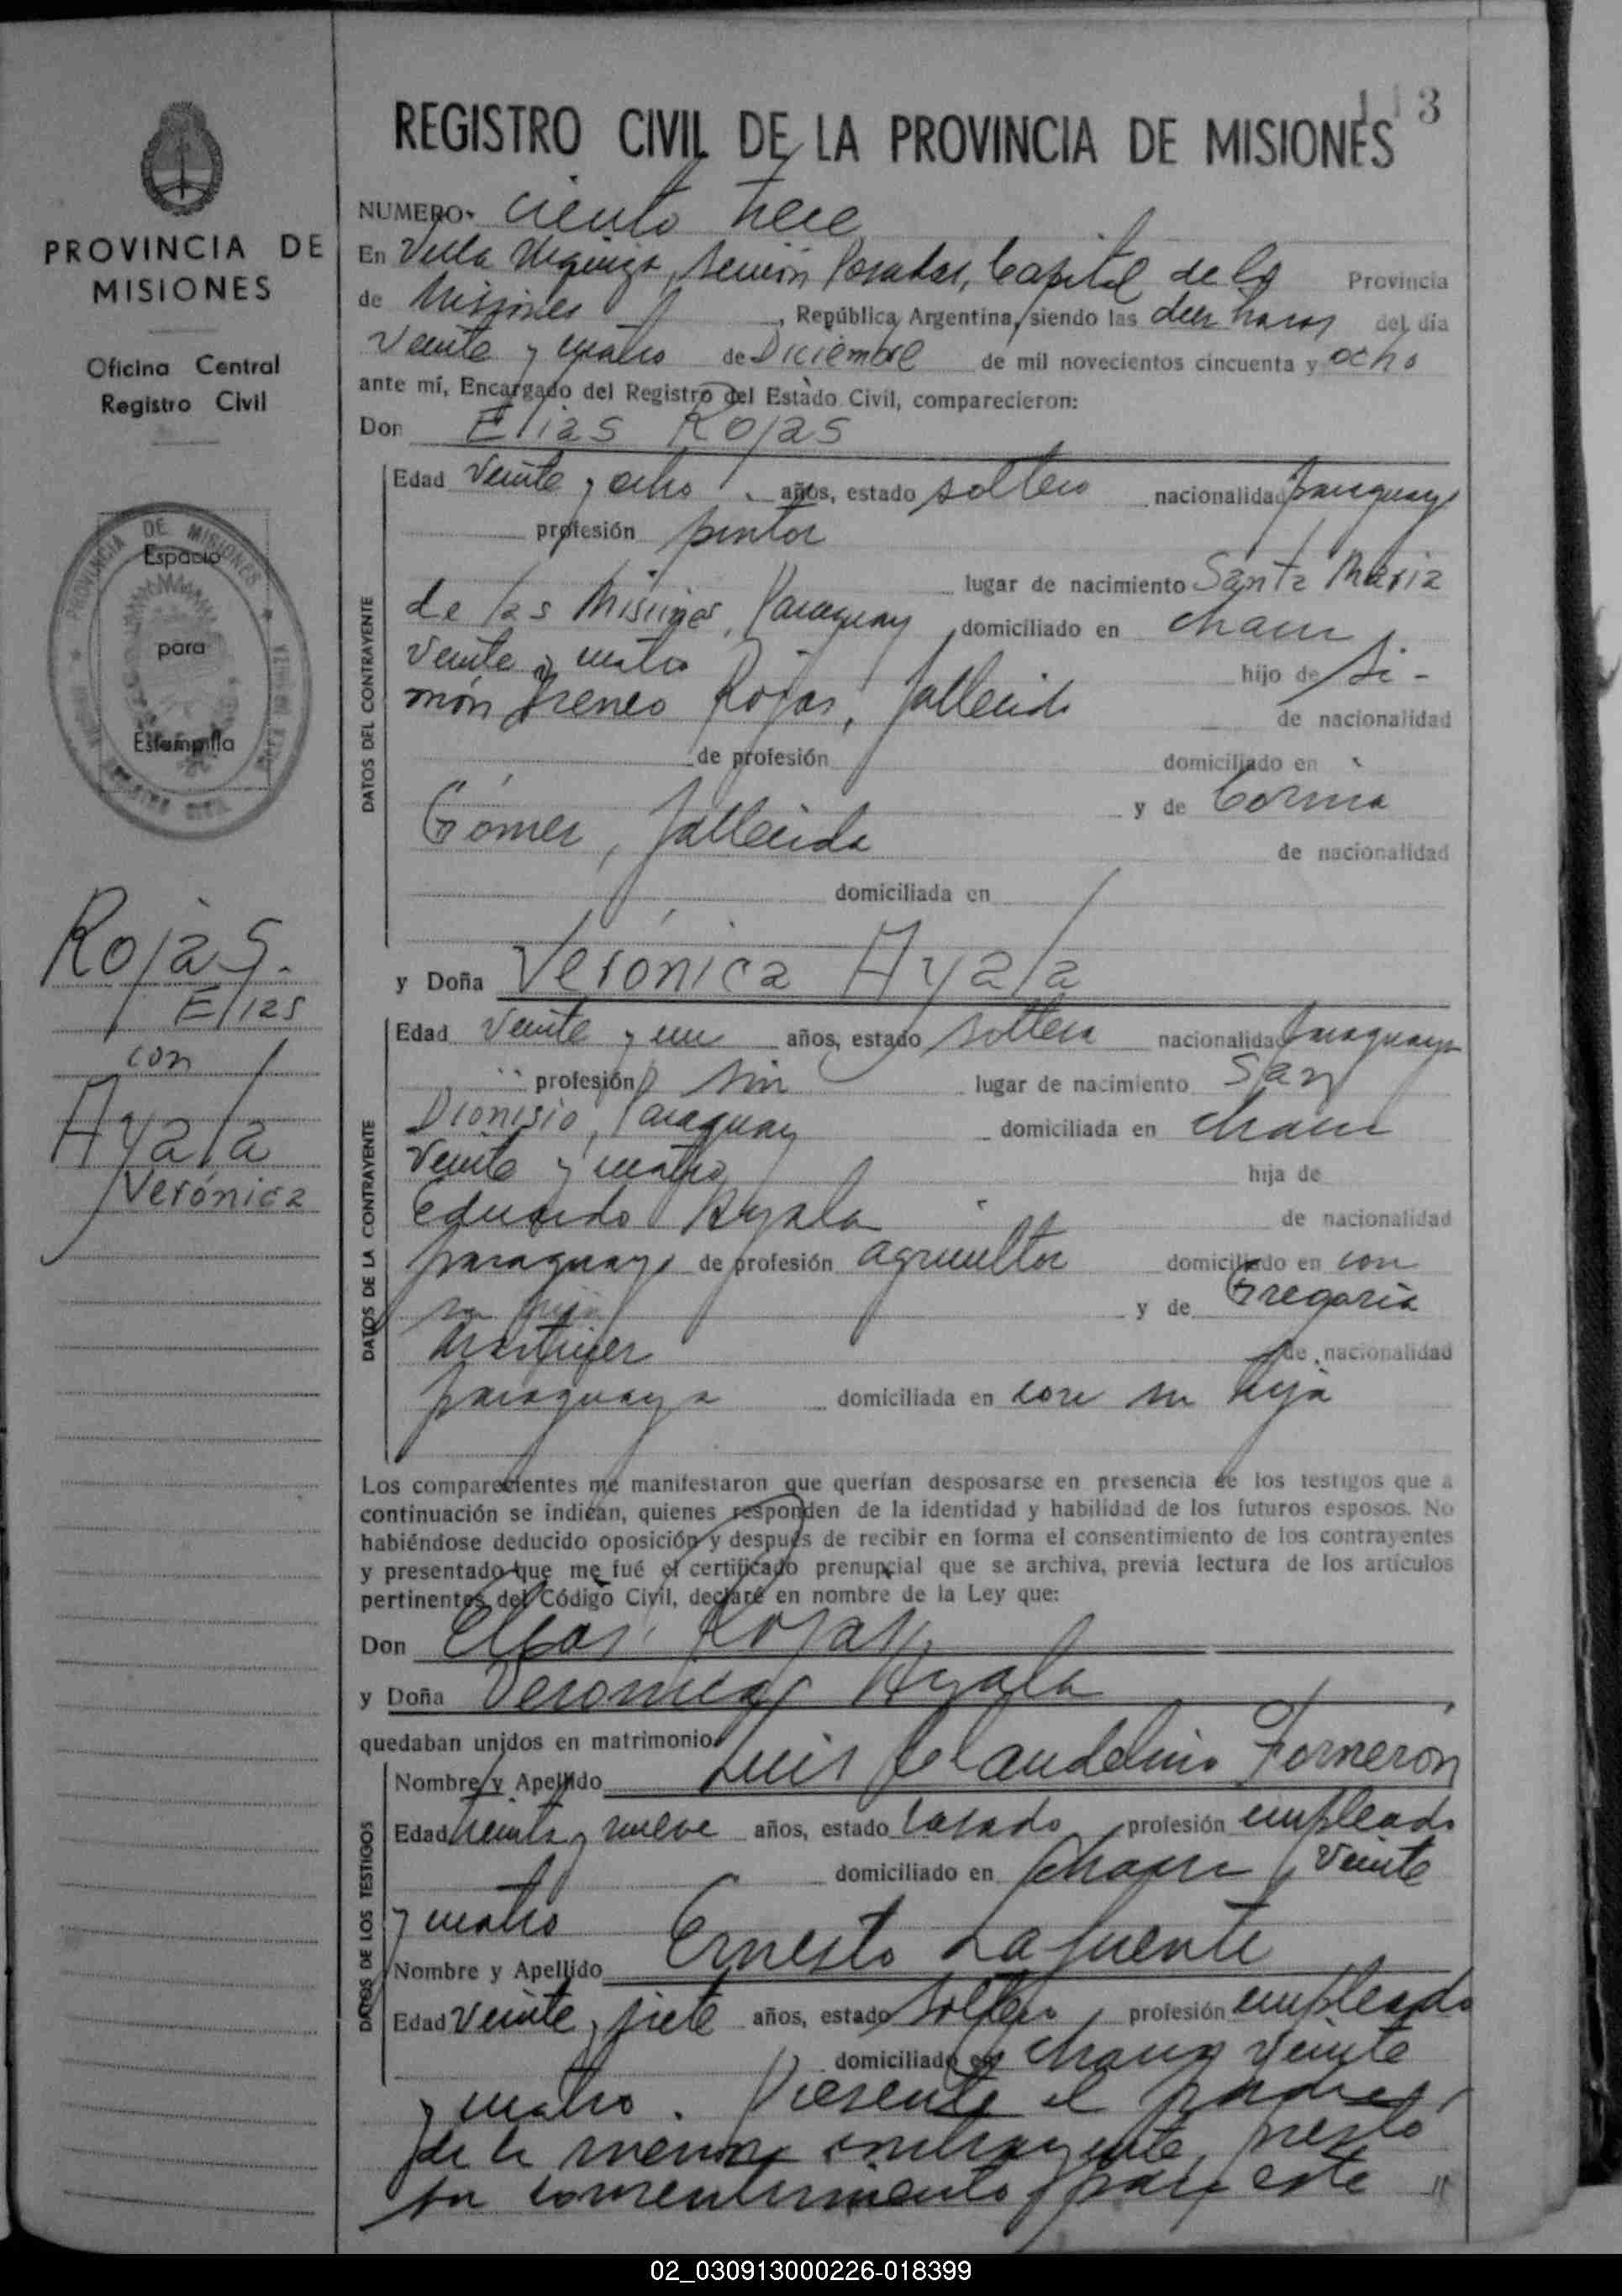 113
REGISTRO CIVIL DE LA PROVINCIA DE MISIONES
PROVINCIA DE
MISIONES
Oficina Central
Registro Civil
PROVINCIA DE MISIONES
Espacio
para
Estampilla
Rojas.
Elias
con
Ayala
Verónica
NUMERO- Ciento trece
En Villa Urquiza, sección Posadas, Capital de la Provincia
de Misiones, República Argentina, siendo las diez horas del día
Veinte y cuatro de Diciembre de mil novecientos cincuenta y ocho
ante mí, Encargado del Registro del Estado Civil, comparecieron:
Don Elias Rojas
DATOS DEL CONTRAYENTE
Edad Veinte y ocho años, estado soltero nacionalidad paraguayo
profesión pintor
lugar de nacimiento Santa Maria
de las Misiones, Paraguay domiciliado en chacra
Veinte y cuatro hijo de Si-
món Ireneo Rojas, fallecido de nacionalidad
de profesión domiciliado en
y de Corina
Gómez, fallecida de nacionalidad
domiciliada en
y Doña Verónica Ayala
DATOS DE LA CONTRAYENTE
Edad Veinte y un años, estado soltera nacionalidad paraguaya
profesión sin lugar de nacimiento San
Dionisio, Paraguay domiciliada en chacra
Veinte y cuatro hija de
Eduardo Ayala de nacionalidad
paraguayo de profesión agricultor domiciliado en con
su hija y de Gregoria
Martinez de nacionalidad
paraguaya domiciliada en con su hija
Los comparecientes me manifestaron que querían desposarse en presencia de los testigos que a
continuación se indican, quienes responden de la identidad y habilidad de los futuros esposos. No
habiéndose deducido oposición y después de recibir en forma el consentimiento de los contrayentes
y presentado que me fué el certificado prenupcial que se archiva, previa lectura de los artículos
pertinentes del Código Civil, declaré en nombre de la Ley que:
Don Elias Rojas
y Doña Veronica Ayala
quedaban unidos en matrimonio.
DATOS DE LOS TESTIGOS
Nombre y Apellido Luis Claudelino Forneron
Edad treinta y nueve años, estado casado profesión empleado
domiciliado en chacra Veinte
y cuatro
Nombre y Apellido Ernesto Lafuente
Edad Veinte y siete años, estado soltero profesión empleado
domiciliado en chacra Veinte
y cuatro. Presente el padre
de la menor contrayente, presto
su consentimiento para este //
02_030913000226-018399